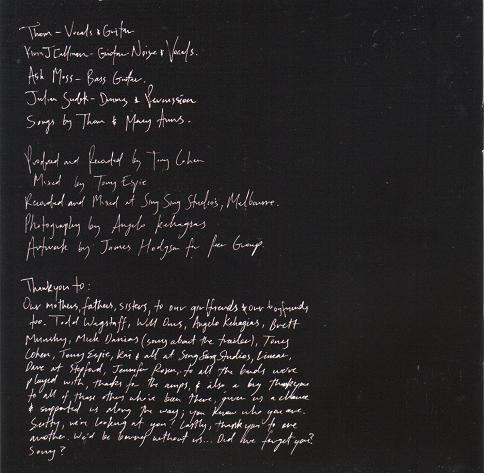 Thom - Vocals & Guitar
Kim J Callinan - Guitar Noise & Vocals.
Ash Moss - Bass Guitar.
Julian - Drums & Percussion
Songs by Thom & Mary Anns.
Produced and Recorded by Tony Cohen
Mixed by Tony Espie
Recorded and Mixed at Sing Sing Studios, Melbourne.
Photography by Angelo Kehagias
Artwork by James Hodgson for Group.
Thankyou to:
Our mothers, fathers, sisters, to our girlfriends & our boyfriends
too. Todd Wagstaff, Will Angelo Kehagias, Brett
Mick (sorry about the trailer), Tony
Cohen, Tony Espie, Kai & all at Sing Sing Studios,
Dave at Stepford, Jennifer to all the bands we've
played with, thanks for the amps, & also a big thankyou
to all of those others who've been there, given us a chance
& supported us along the way; you know who you are.
Scotty, we're looking at you! Lastly, thankyou to one
another. We'd be without us... Did we forget you?
Sorry?